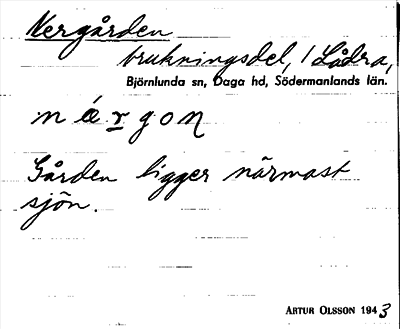 Nergården
brukningsdel, i Lådra,
Björnlunda sn, Daga hd, Södermanlands län.
n ǽ r g o n
Gården ligger närmast
sjön.
ARTUR OLSSON 1943